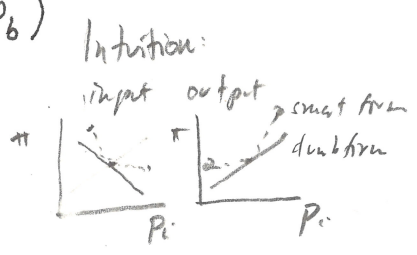 b)
Intuition:
input output
smart firm
π π dumb firm
Pi Pi